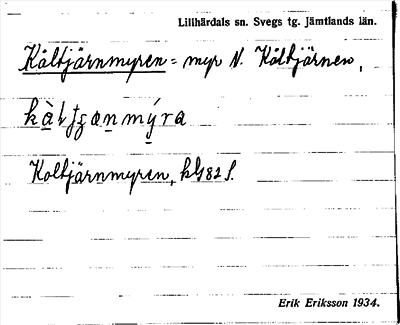 Lillhärdals sn. Svegs tg. Jämtlands län.
Kåltjärnmyren = myr N. Kåltjärnen,
Koltjärnmyren,
Erik Eriksson 1934.